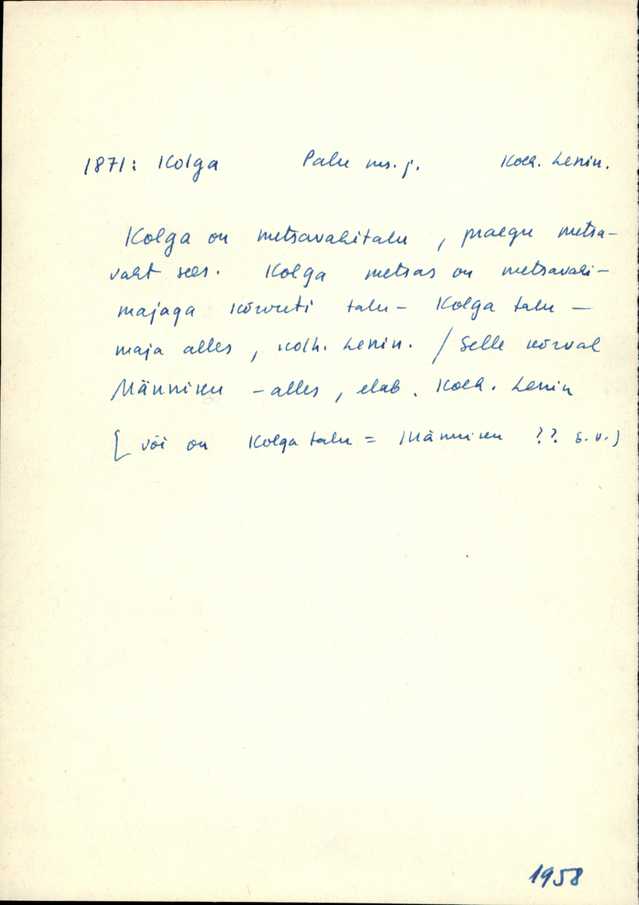 1871: Kolga Palu ms. j. Kolh. Lenin.
Kolga on metsavahitalu, praegu metsa-
vaht sees. Kolga metsas on metsavahi-
majaga kõrvuti talu - Kolga talu -
maja alles, kolh. Lenin. / Selle kõrval
Männiku - alles, elab. Kolh. Lenin
[ või on Kolga talu = Männiku ?? s. v.)
1958